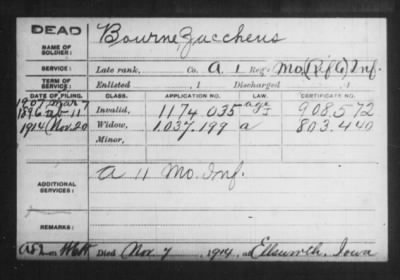 DEAD
NAME OF SOLDIER:
Bourne, Zaccheus
SERVICE:
Late rank, Co. A 1 Reg't Mo (R f G) Inf.
TERM OF SERVICE:
Enlisted , 1 Discharged , 1
DATE OF FILING. CLASS. APPLICATION NO. LAW. CERTIFICATE NO.
1907 Mar 7
1896 11 Invalid, 1174 035 age 908.572
1914 Nov. 20 Widow, 1.037.199 a 803.440
Minor,
ADDITIONAL SERVICES:
A 11 Mo. Inf.
REMARKS:
Died Nov. 7, 1914, at Ellsworth, Iowa